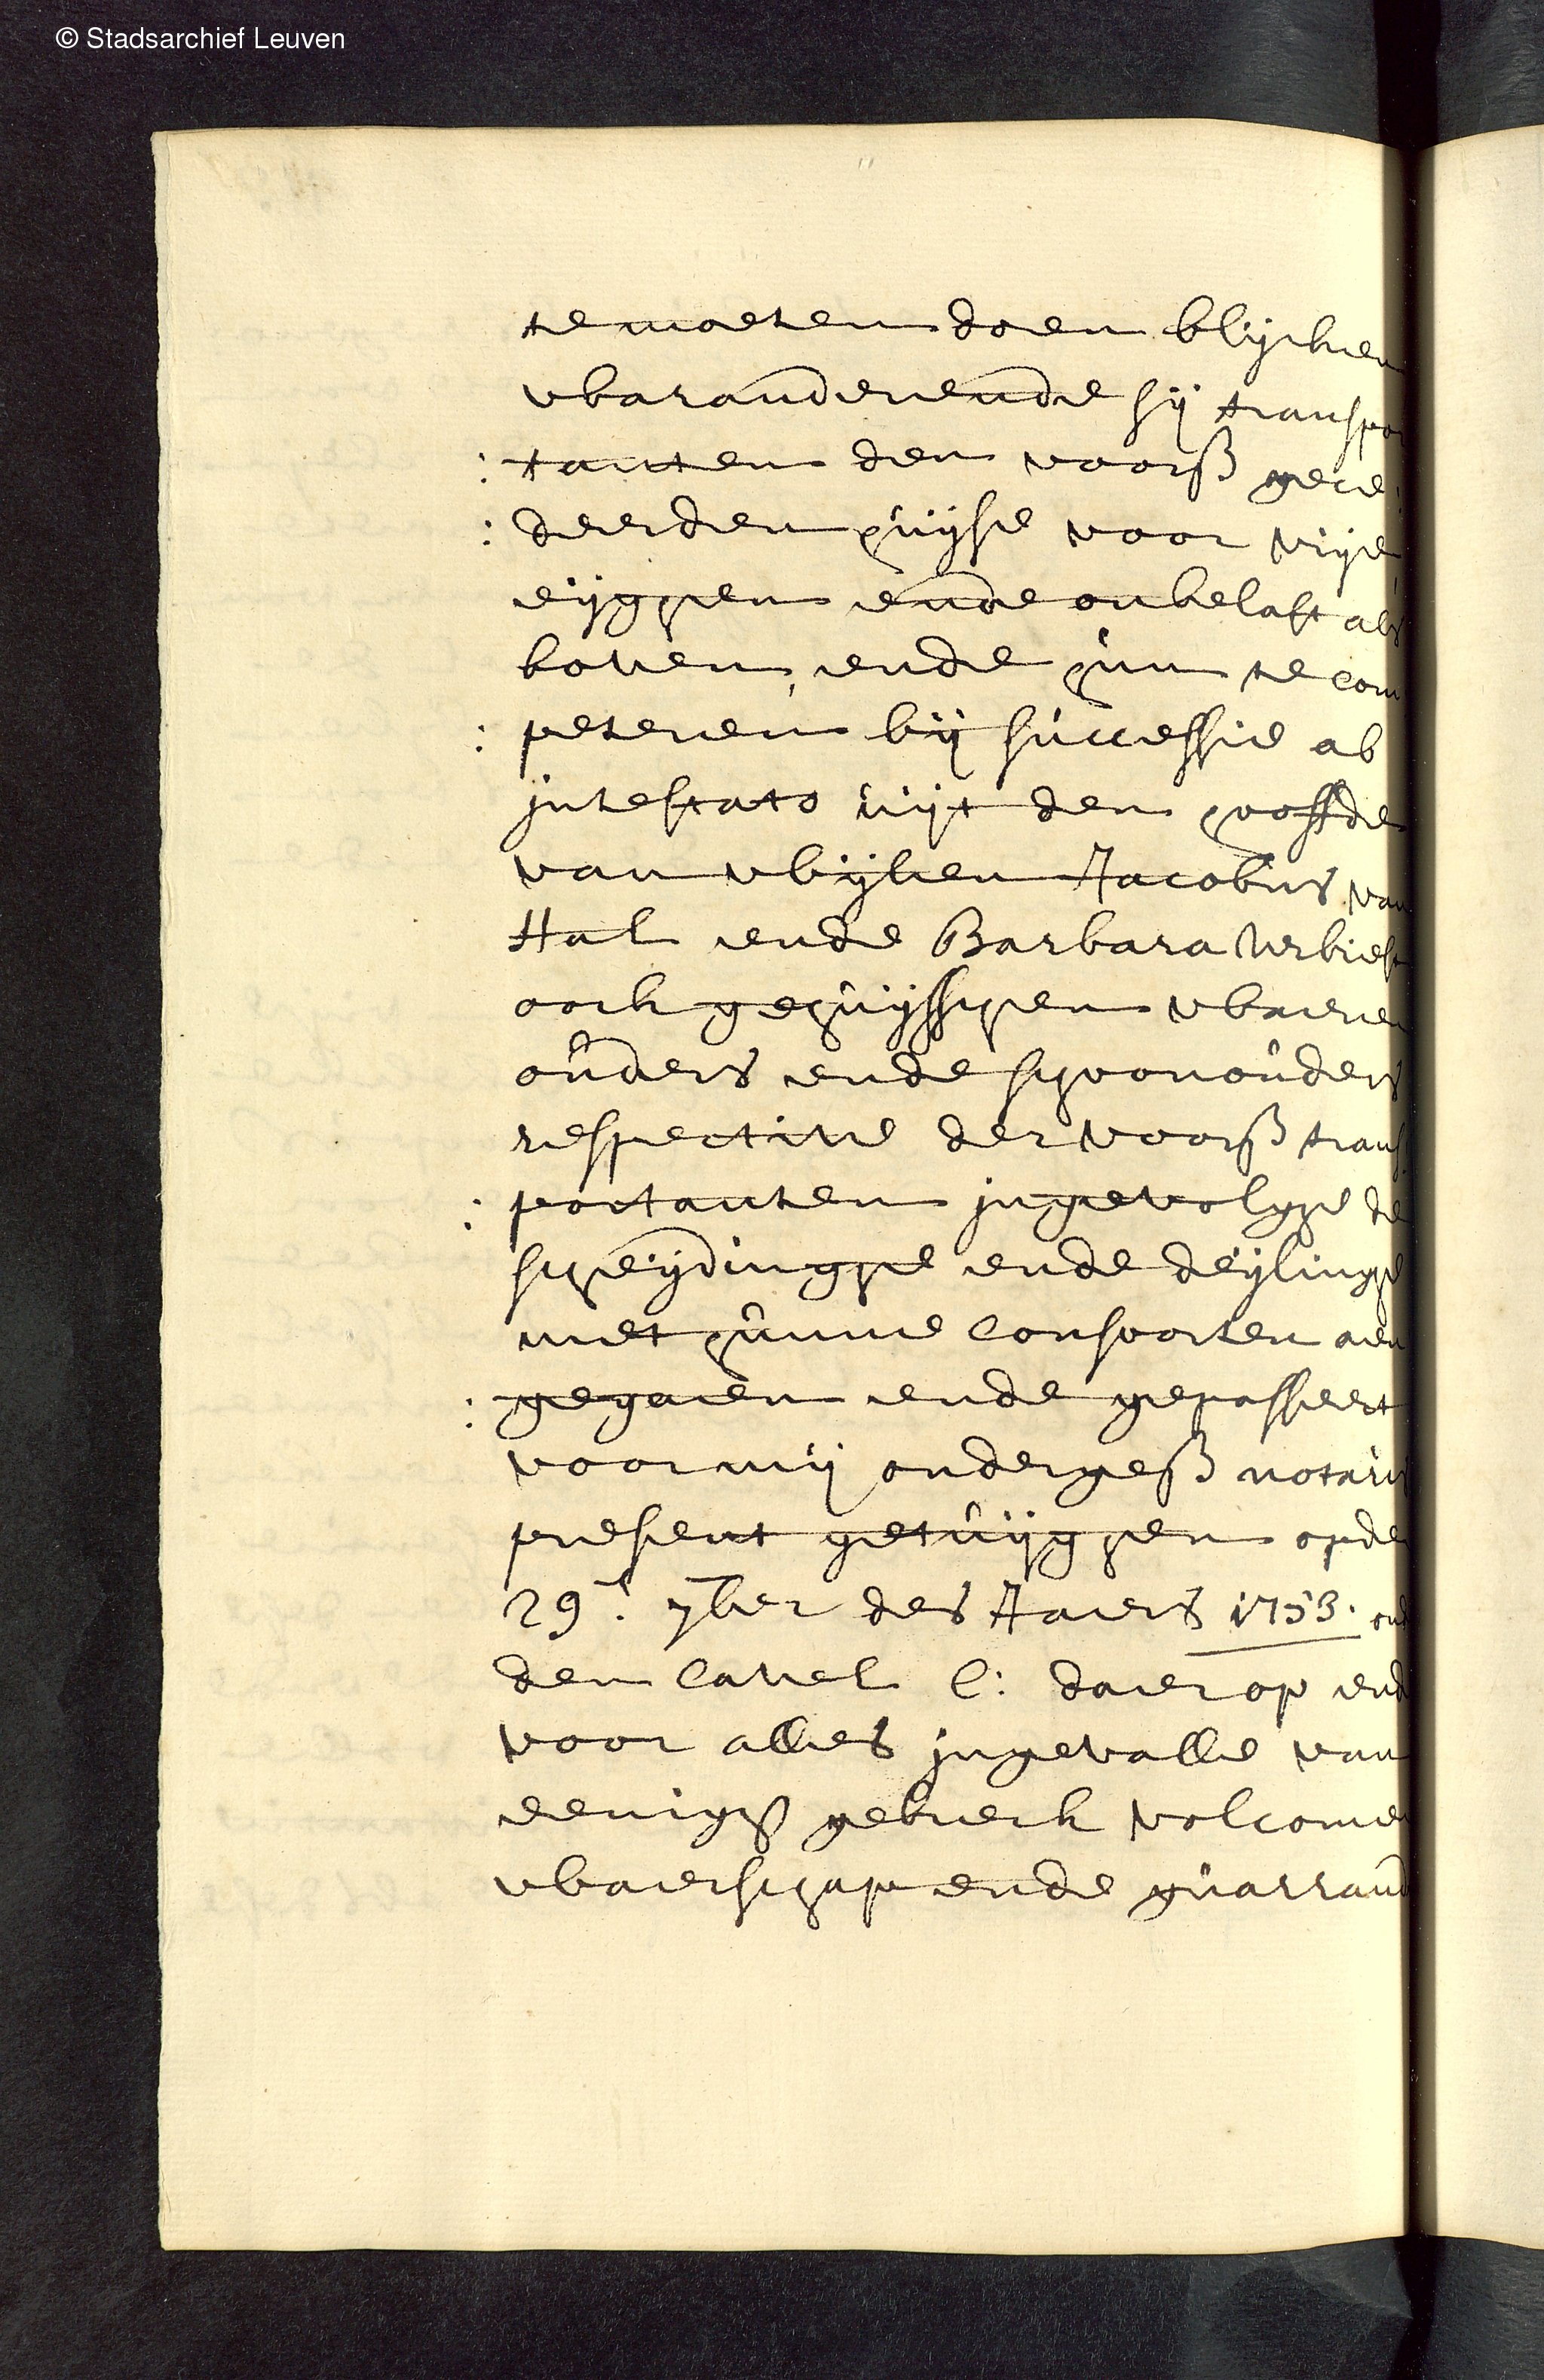 © Stadsarchief Leuven
te moeten doen blijcken
waeranderende sij transpor
: tanten den voors gece:
: deerden huijse voor vrije
eijghen ende onbelast als
boven, ende hun te com
: peteren bij successie ab
intestato uijt den hoofde
van wijlen Jacobus van
Hal ende Barbara Verbiest
oock gehuijsschen waeren
ouders ende schoonouders
respective der voors trans
: portanten ingevolghe de
scheijdinghe ende deijlinghe
met hunne consoorten aen
: gegaen ende gepasseert
voor mij onderges notaris
present getuijghen opde
29e 7ber des Jaers 1753. ond
den Cavel C: daer op ende
voor alles ingevalle van
eenigh gebreck volcomen
waerschap ende guarrand